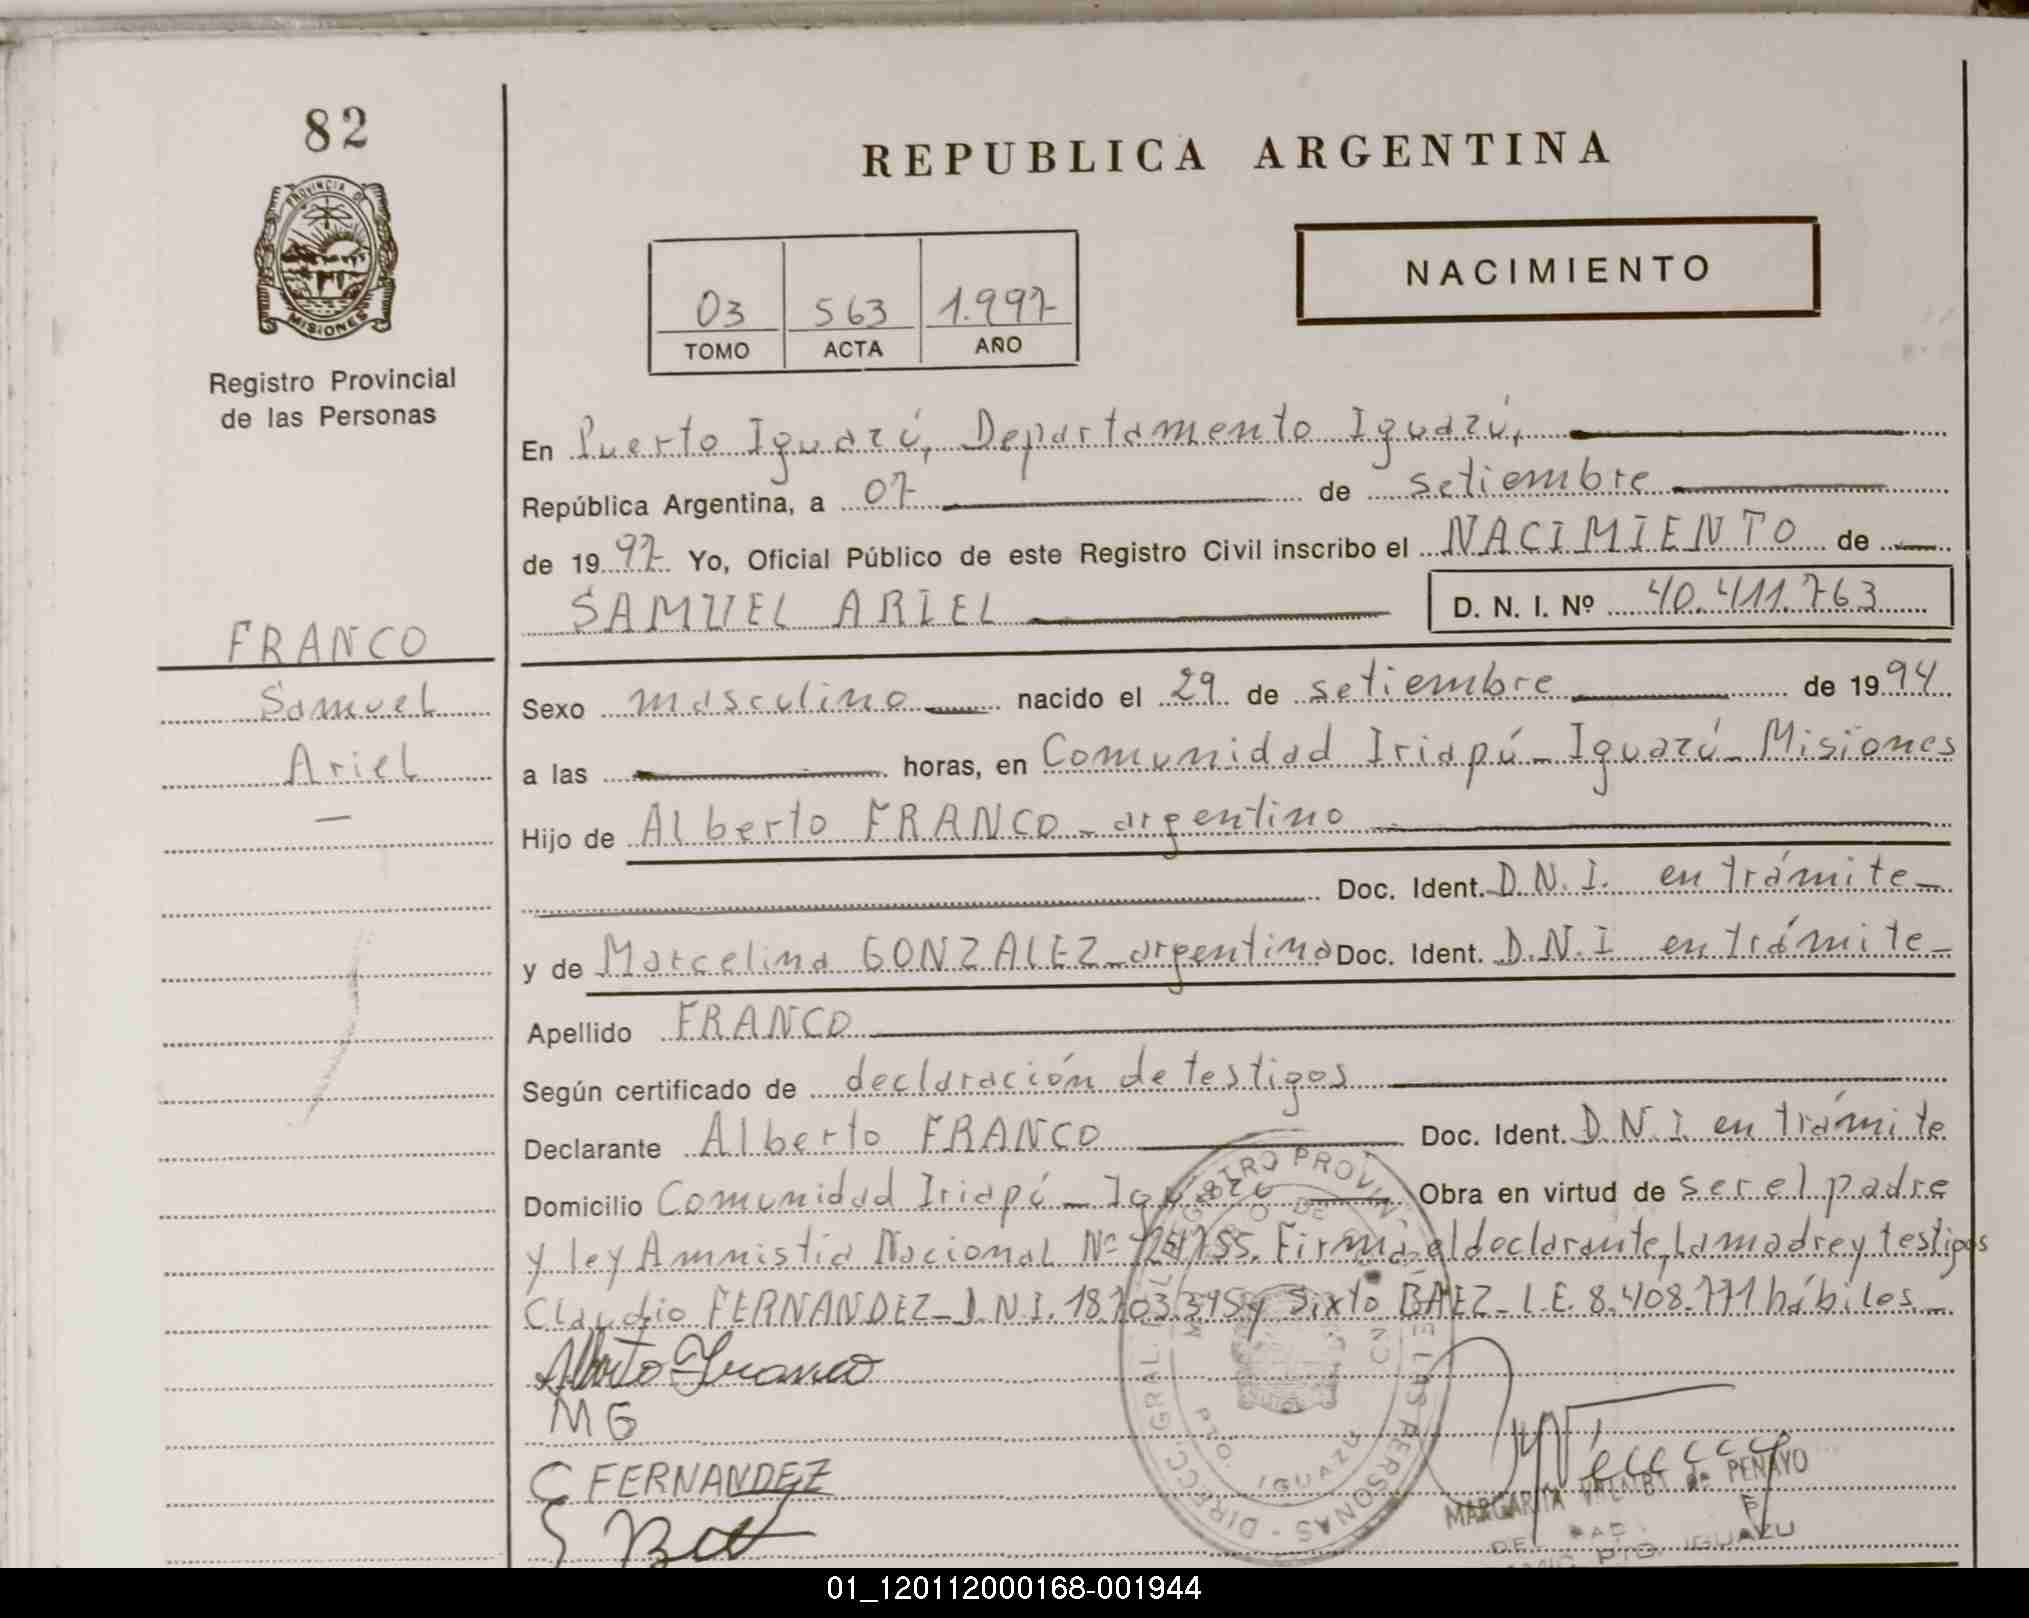 82
PROVINCIA DE
MISIONES
Registro Provincial
de las Personas
REPUBLICA ARGENTINA
03 563 1.997
TOMO ACTA AÑO
NACIMIENTO
En Puerto Iguazú, Departamento Iguazú,
República Argentina, a 07 de setiembre
de 1997 Yo, Oficial Público de este Registro Civil inscribo el NACIMIENTO de
SAMUEL ARIEL D. N. I. Nº 40.411.763
FRANCO
Samuel
Ariel
Sexo masculino nacido el 29 de setiembre de 1994
a las horas, en Comunidad Iriapú - Iguazú - Misiones
Hijo de Alberto FRANCO - argentino
Doc. Ident. D.N.I. en trámite -
y de Marcelina GONZALEZ - argentina Doc. Ident. D.N.I en trámite -
Apellido FRANCO
Según certificado de declaración de testigos
Declarante Alberto FRANCO Doc. Ident. D.N.I en trámite
Domicilio Comunidad Iriapú - Iguazú Obra en virtud de ser el padre
y ley Amnistia Nacional Nº Firma el declarante, la madre y testigos
Claudio FERNANDEZ - D.N.I. y Sixto BAEZ - L.E. 8.408.771 hábiles -
Alberto Franco
MG
C FERNANDEZ
DIRECC. GRAL. REGISTRO PROVINCIAL DE LAS PERSONAS
PTO. IGUAZU
MARGARITA de PENAYO
PTO. IGUAZU
01_120112000168-001944